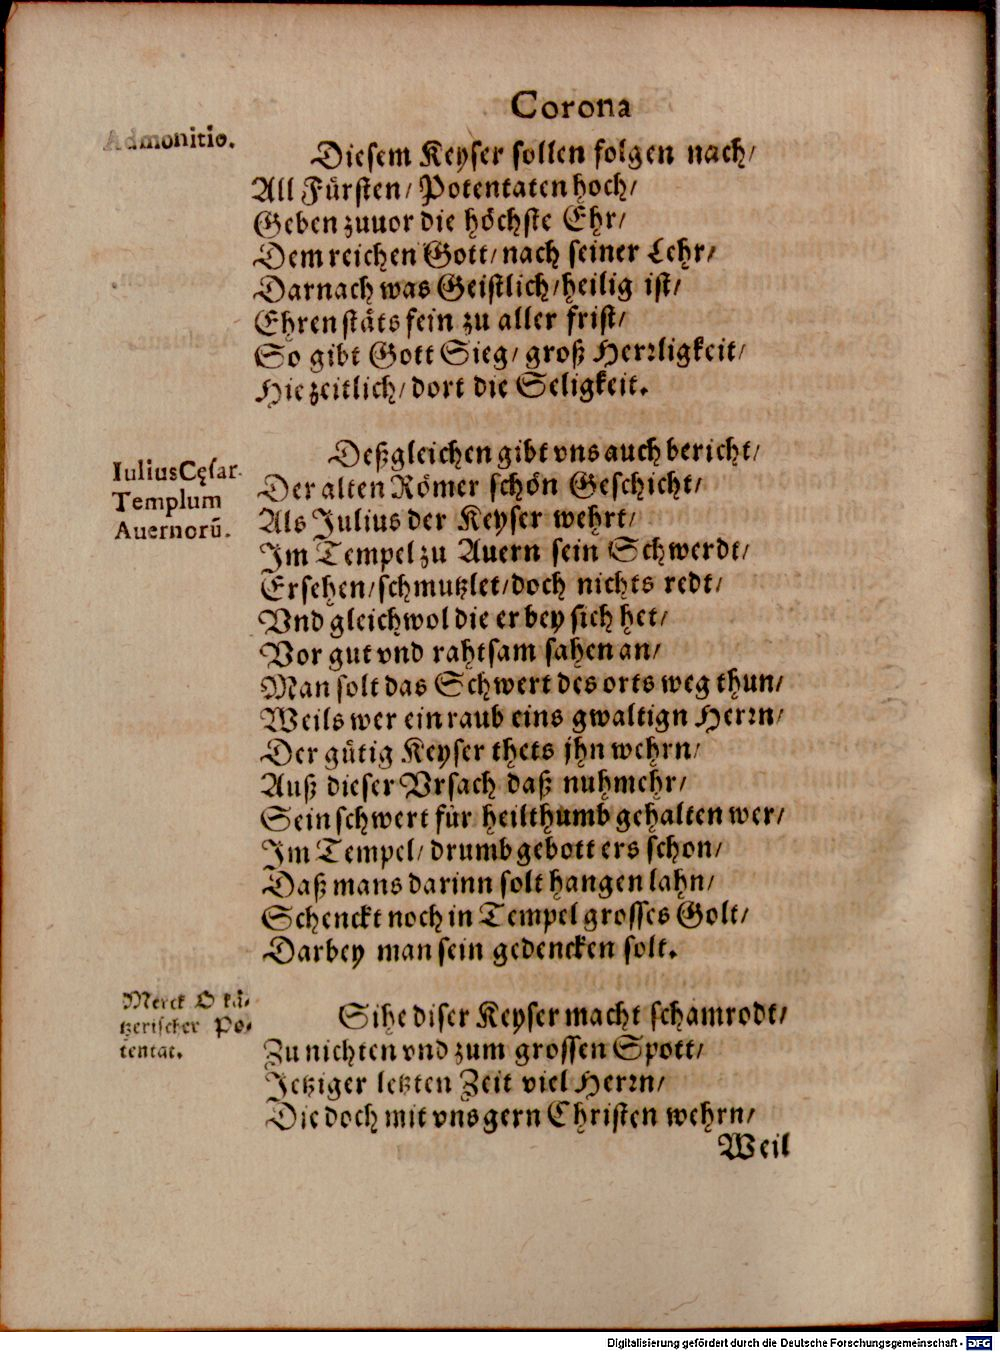 Corona
Admonitio.
Diesem Keyser sollen folgen nach/
All Fürsten/ Potentaten hoch/
Geben zuuor die höchste Ehr/
Dem reichen Gott/ nach seiner Lehr/
Darnach was Geistlich/ heilig ist/
Ehren stäts fein zu aller frist/
So gibt Gott Sieg/ groß Herrligkeit/
Hie zeitlich/ dort die Seligkeit.
Iulius Cęsar.
Templum
Auernorū.
Deßgleichen gibt vns auch bericht/
Der alten Römer schön Geschicht/
Als Julius der Keyser wehrt/
Im Tempel zu Auern sein Schwerdt/
Ersehen/ schmutzlet/ doch nichts redt/
Vnd gleichwol die er bey sich het/
Vor gut vnd rahtsam sahen an/
Man solt das Schwert des orts weg thun/
Weils wer ein raub eins gwaltign Herrn/
Der gütig Keyser thets jhn wehrn/
Auß dieser Vrsach daß nuhmehr/
Sein schwert für heilthumb gehalten wer/
Im Tempel/ drumb gebott ers schon/
Daß mans darinn solt hangen lahn/
Schenckt noch in Tempel grosses Golt/
Darbey man sein gedencken solt.
Merck O kä-
tzerischer Po-
tentat.
Sihe diser Keyser macht schamrodt/
Zu nichten vnd zum grossen Spott/
Jetziger letzten Zeit viel Herrn/
Die doch mit vns gern Christen wehrn/
Weil
Digitalisierung gefördert durch die Deutsche Forschungsgemeinschaft - DFG